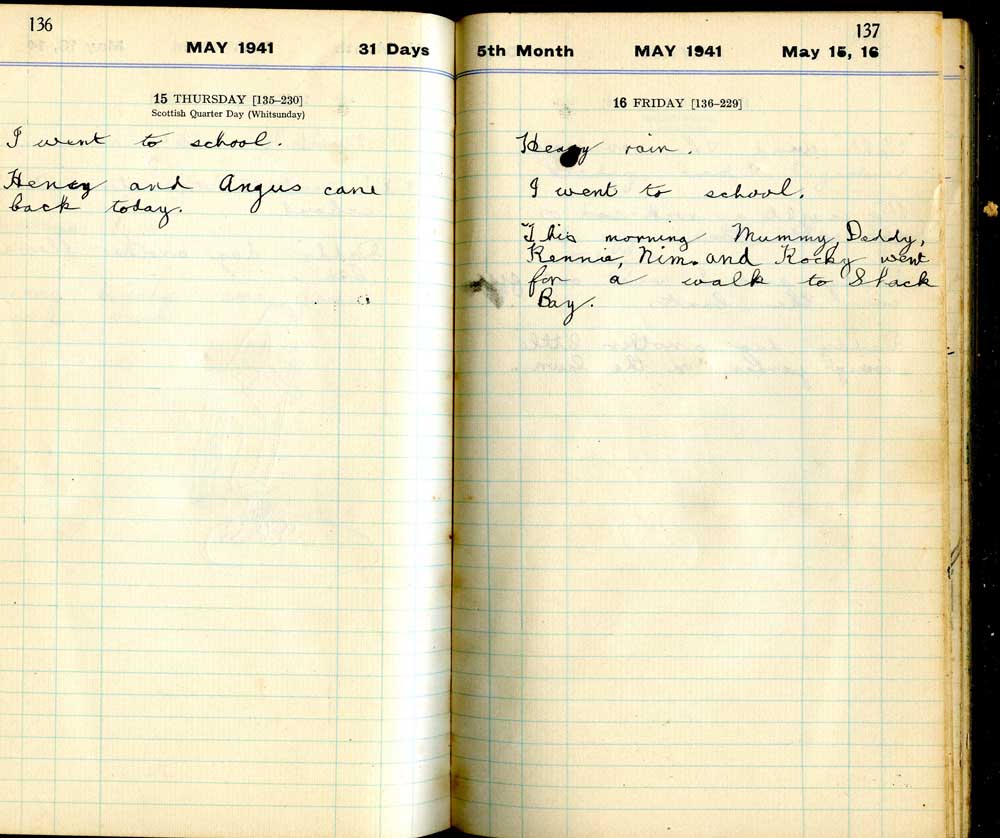 136
MAY 1941 31 Days
15 THURSDAY [135–230]
Scottish Quarter Day (Whitsunday)
I went to school.
Henry and Angus cane
back today.
137
5th Month MAY 1941 May 15, 16
16 FRIDAY [136–229]
Heavy rain.
I went to school.
This morning Mummy, Daddy,
Rennie, Nim. and Rocky went
for a walk to Shack
Bay.